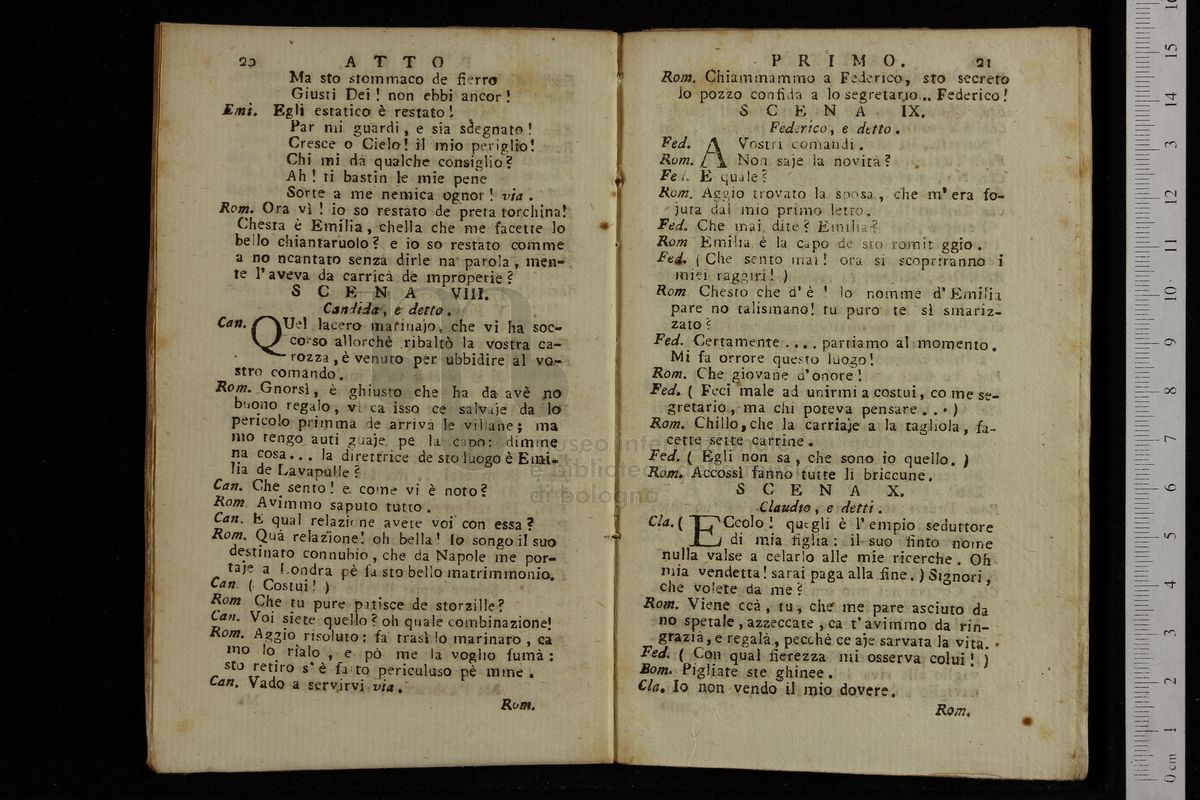 20 ATTO
Ma sto stommaco de fierro
Giusti Dei! non ebbi ancor!
Emi. Egli estatico è restato!
Par mi guardi, e sia sdegnato!
Cresce o Cielo! il mio periglio!
Chi mi dà qualche consiglio?
Ah! ti bastin le mie pene
Sorte a me nemica ognor! via.
Rom. Ora vì! io so restato de preta torchina!
Chesta è Emilia, chella che me facette lo
bello chiantaruolo? e io so restato comme
a no ncantato senza dirle na parola, men-
te l'aveva da carricà de mproperie?
SCENA VIII.
Candida, e detto.
Can. QUel lacero marinajo, che vi ha soc-
corso allorchè ribaltò la vostra ca-
rozza, è venuto per ubbidire al vo-
stro comando.
Rom. Gnorsì, è ghiusto che ha da avè no
buono regalo, vi ca isso ce salvaje da lo
pericolo primma de arriva le villane; ma
mo tengo auti guaje pe la capo: dimme
na cosa... la direttrice de sto luogo è Emi-
lia de Lavapulle?
Can. Che sento! e come vi è noto?
Rom. Avimmo saputo tutto.
Can. E qual relazione avete voi con essa?
Rom. Quà relazione! oh bella! Io songo il suo
destinato connubio, che da Napole me por-
taje a Londra pè fa sto bello matrimmonio.
Can. (Costui!)
Rom Che tu pure patisce de storzille?
Can. Voi siete quello? oh quale combinazione!
Rom. Aggio risoluto: fa trasì lo marinaro, ca
mo lo rialo, e pò me la voglio fumà:
sto retiro s'è fatto periculuso pè mme.
Can. Vado a servirvi via.
Rom.
PRIMO. 21
Rom. Chiammammo a Federico, sto secreto
lo pozzo confidà a lo segretario.. Federico!
SCENA IX.
Federico, e detto.
Fed. A Vostri comandi.
Rom. Non saje la novità?
Fed. E quale?
Rom. Aggio trovato la sposa, che m'era fo-
juta dal mio primo letto.
Fed. Che mai dite? Emilia?
Rom Emilia è la capo de sto romitaggio.
Fed. (Che sento mai! ora si scopriranno i
miei raggiri!)
Rom. Chesto che d'è! lo nomme d'Emilia
pare no talismano! tu puro te sì smariz-
zato?
Fed. Certamente.... partiamo al momento.
Mi fa orrore questo luogo!
Rom. Che giovane d'onore!
Fed. (Feci male ad unirmi a costui, come se-
gretario, ma chi poteva pensare...)
Rom. Chillo, che la carriaje a la tagliola, fa-
cette sette carrine.
Fed. (Egli non sa, che sono io quello.)
Rom. Accossì fanno tutte li briccune.
SCENA X.
Claudio, e detti.
Cla. (ECcolo! quegli è l'empio seduttore
di mia figlia: il suo finto nome
nulla valse a celarlo alle mie ricerche. Oh
mia vendetta! sarai paga alla fine.) Signori,
che volete da me?
Rom. Viene ccà, tu, che me pare asciuto da
no spetale, azzeccate, ca t'avimmo da rin-
grazià, e regalà, pecchè ce aje sarvata la vita.
Fed. (Con qual fierezza mi osserva colui!)
Bom. Pigliate ste ghinee.
Cla. Io non vendo il mio dovere.
Rom.